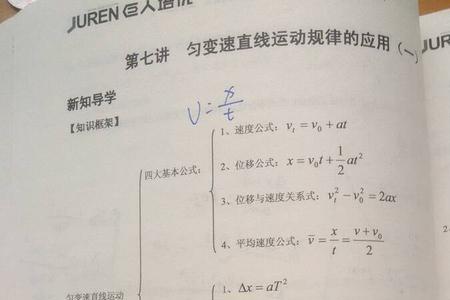 JUREN 巨人培优
第七讲 匀变速直线运动规律的应用（一）
JUR
新知导学
【知识框架】
v=x/t
四大基本公式：
1、速度公式：v_t = v_0 + at
2、位移公式：x = v_0t + 1/2 at²
3、位移与速度关系式：v_t² - v_0² = 2ax
4、平均速度公式：v̄ = x/t = (v + v_0)/2
匀变速直线运动
1、Δx = aT²